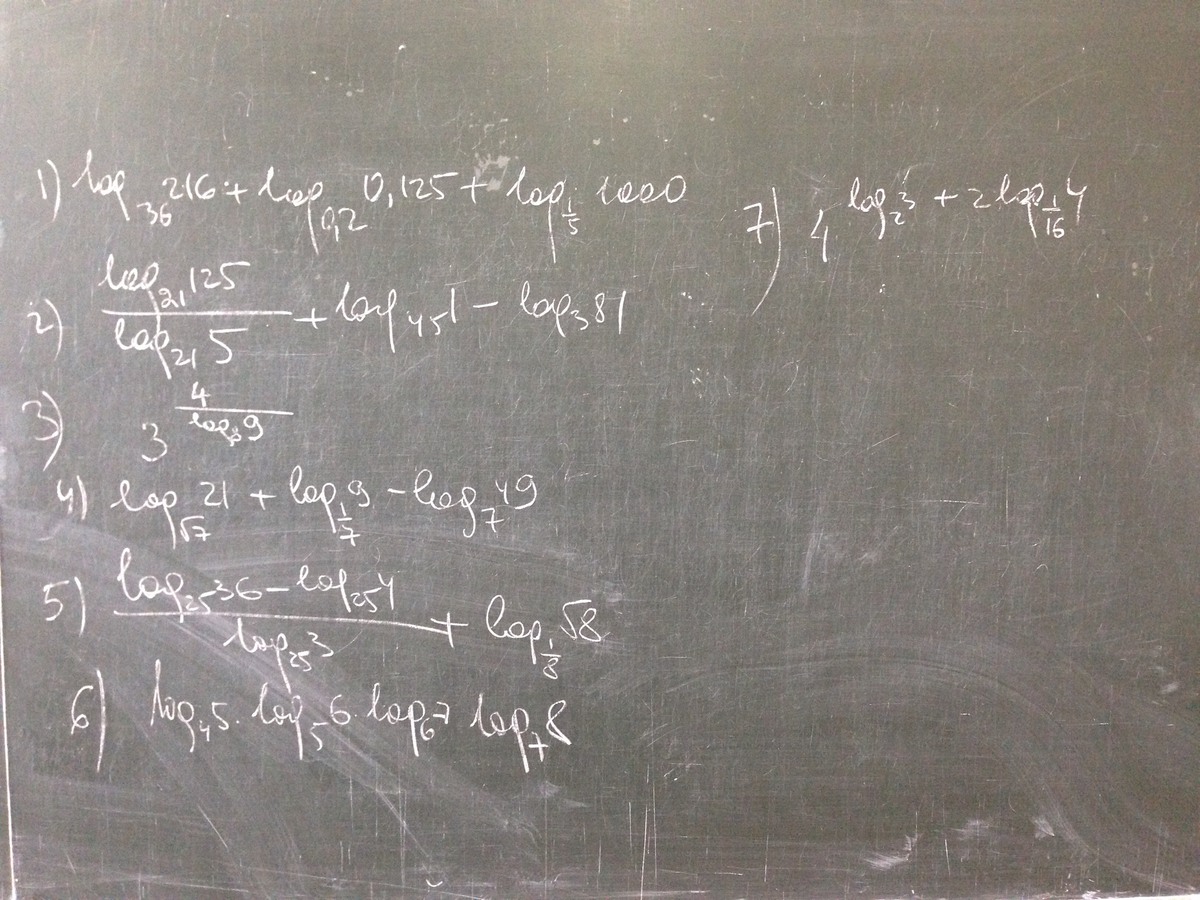 1) log₃₆ 216 + log₀,₂ 0,125 + log_{1/5} 1000
2) \frac{log₂₁ 125}{log₂₁ 5} + log₄₅ 1 − log₃ 81
3) 3^{\frac{4}{log₈ 9}}
4) log_{√7} 21 + log_{1/7} 9 − log₇ 49
5) \frac{log₂₅ 36 − log₂₅ 4}{log₂₅ 3} + log_{1/8} √8
6) log₄ 5 · log₅ 6 · log₆ 7 log₇ 8
7) 4^{log₂ 3 + 2 log_{1/16} 4}